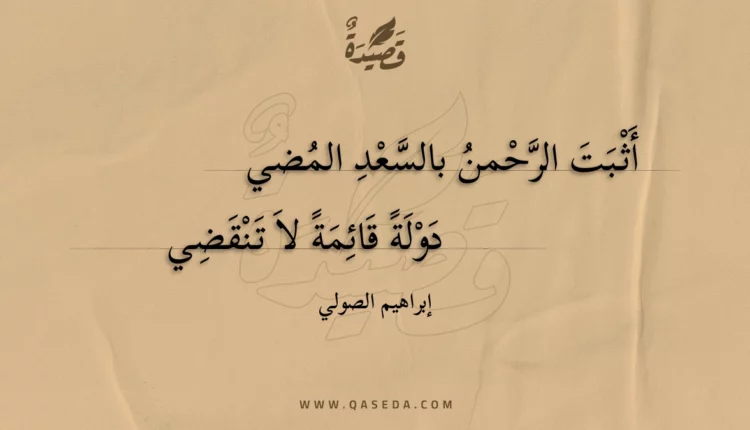 قَصِيْدَةٌ
أَثْبَتَ الرَّحْمنُ بالسَّعْدِ المُضي
دَوْلَةً قَائِمَةً لاَ تَنْقَضِي
إبراهيم الصولي
WWW.QASEDA.COM